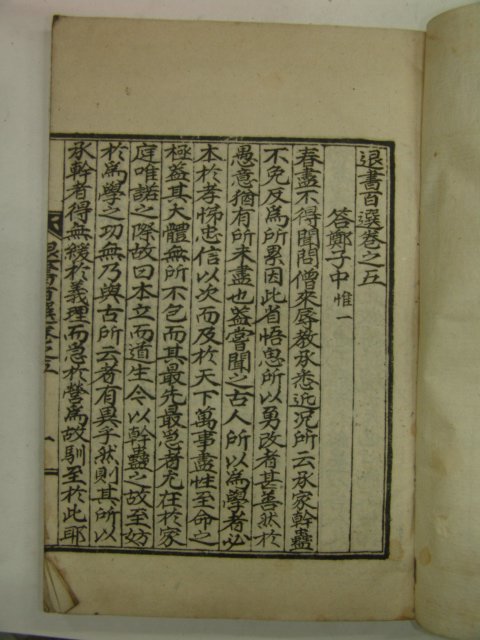 退書百選卷之五
答鄭子中 惟一
春盡不得聞問僧來辱教承悉近況所云承家幹蠱
不免反爲所累因此省悟思所以勇改者甚善然於
愚意猶有所未盡也蓋嘗聞之古人所以爲學者必
本於孝悌忠信以次而及於天下萬事盡性至命之
極蓋其大體無所不包而其最先最急者尤在於家
庭唯諾之際故曰本立而道生今以幹蠱之故至妨
於爲學之功無乃與古所云者有異乎然則其所以
承幹者得無緩於義理而急於營爲故馴至於此耶
退書百選卷之五 一